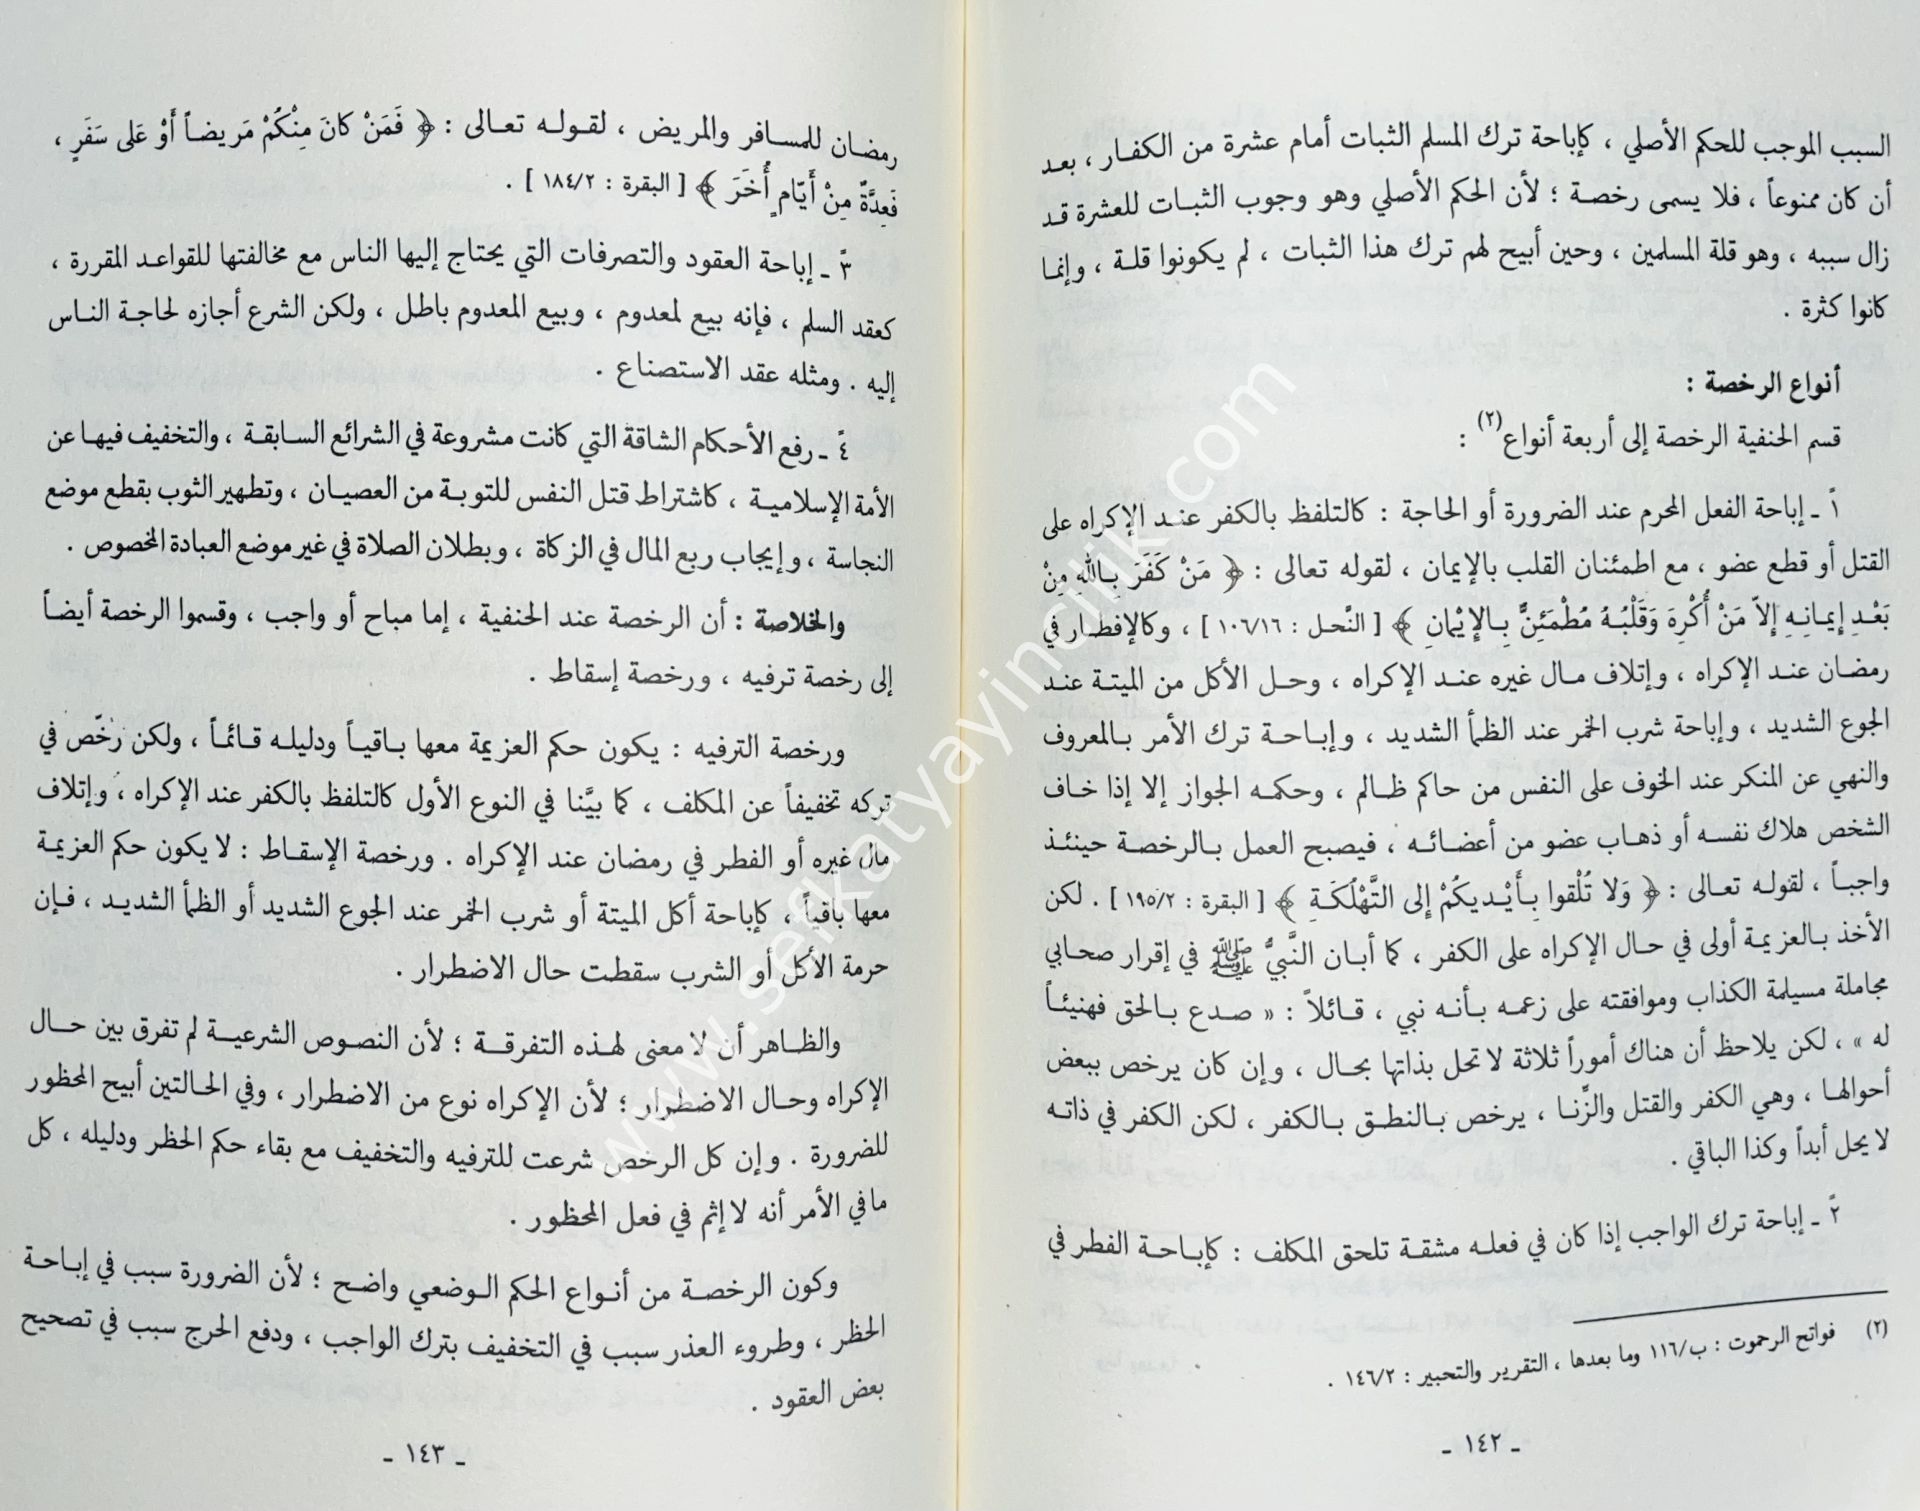 السبب الموجب للحكم الأصلي ، كإباحة ترك المسلم الثبات أمام عشرة من الكفار ، بعد
أن كان ممنوعاً ، فلا يسمى رخصة ؛ لأن الحكم الأصلي وهو وجوب الثبات للعشرة قد
زال سببه ، وهو قلة المسلمين ، وحين أبيح لهم ترك هذا الثبات ، لم يكونوا قلة ، وإنما
كانوا كثرة .
أنواع الرخصة :
قسم الحنفية الرخصة إلى أربعة أنواع(٢) :
١ً ـ إباحة الفعل المحرم عند الضرورة أو الحاجة : كالتلفظ بالكفر عند الإكراه على
القتل أو قطع عضو ، مع اطمئنان القلب بالإيمان ، لقوله تعالى : ﴿ مَنْ كَفَرَ بِاللهِ مِنْ
بَعْدِ إيمانِهِ إلاّ مَنْ أُكْرِهَ وَقَلْبُهُ مُطْمَئِنٌّ بِالإيْمانِ ﴾ [ النَّحل : ١٠٦/١٦ ] ، وكالإفطار في
رمضان عند الإكراه ، وإتلاف مال غيره عند الإكراه ، وحل الأكل من الميتة عند
الجوع الشديد ، وإباحة شرب الخمر عند الظمأ الشديد ، وإباحة ترك الأمر بالمعروف
والنهي عن المنكر عند الخوف على النفس من حاكم ظالم ، وحكمه الجواز إلا إذا خاف
الشخص هلاك نفسه أو ذهاب عضو من أعضائه ، فيصبح العمل بالرخصة حينئذ
واجباً ، لقوله تعالى : ﴿ وَلا تُلْقوا بِأَيْديكُمْ إلى التَّهْلُكَةِ ﴾ [ البقرة : ١٩٥/٢ ] . لكن
الأخذ بالعزيمة أولى في حال الإكراه على الكفر ، كما أبان النَّبيُّ ﷺ في إقرار صحابي
مجاملة مسيلمة الكذاب وموافقته على زعمه بأنه نبي ، قائلاً : « صدع بالحق فهنيئاً
له » ، لكن يلاحظ أن هناك أموراً ثلاثة لا تحل بذاتها بحال ، وإن كان يرخص ببعض
أحوالها ، وهي الكفر والقتل والزِّنا ، يرخص بالنطق بالكفر ، لكن الكفر في ذاته
لا يحل أبداً وكذا الباقي .
٢ً ـ إباحة ترك الواجب إذا كان في فعله مشقة تلحق المكلف : كإباحة الفطر في
(٢) فواتح الرحموت : ب/١١٦ وما بعدها ، التقرير والتحبير : ١٤٦/٢ .
ـ ١٤٢ ـ
رمضان للمسافر والمريض ، لقوله تعالى : ﴿ فَمَنْ كانَ مِنْكُمْ مَريضاً أَوْ عَلى سَفَرٍ ،
فَعِدَّةٌ مِنْ أَيّامٍ أُخَرَ ﴾ [ البقرة : ١٨٤/٢ ] .
٣ً ـ إباحة العقود والتصرفات التي يحتاج إليها الناس مع مخالفتها للقواعد المقررة ،
كعقد السلم ، فإنه بيع لمعدوم ، وبيع المعدوم باطل ، ولكن الشرع أجازه لحاجة الناس
إليه . ومثله عقد الاستصناع .
٤ً ـ رفع الأحكام الشاقة التي كانت مشروعة في الشرائع السابقة ، والتخفيف فيها عن
الأمة الإسلامية ، كاشتراط قتل النفس للتوبة من العصيان ، وتطهير الثوب بقطع موضع
النجاسة ، وإيجاب ربع المال في الزكاة ، وبطلان الصلاة في غير موضع العبادة المخصوص .
والخلاصة : أن الرخصة عند الحنفية ، إما مباح أو واجب ، وقسموا الرخصة أيضاً
إلى رخصة ترفيه ، ورخصة إسقاط .
ورخصة الترفيه : يكون حكم العزيمة معها باقياً ودليله قائماً ، ولكن رخّص في
تركه تخفيفاً عن المكلف ، كما بيَّنا في النوع الأول كالتلفظ بالكفر عند الإكراه ، وإتلاف
مال غيره أو الفطر في رمضان عند الإكراه . ورخصة الإسقاط : لا يكون حكم العزيمة
معها باقياً ، كإباحة أكل الميتة أو شرب الخمر عند الجوع الشديد أو الظمأ الشديد ، فإن
حرمة الأكل أو الشرب سقطت حال الاضطرار .
والظاهر أن لا معنى لهذه التفرقة ؛ لأن النصوص الشرعية لم تفرق بين حال
الإكراه وحال الاضطرار ؛ لأن الإكراه نوع من الاضطرار ، وفي الحالتين أبيح المحظور
للضرورة . وإن كل الرخص شرعت للترفيه والتخفيف مع بقاء حكم الحظر ودليله ، كل
ما في الأمر أنه لا إثم في فعل المحظور .
وكون الرخصة من أنواع الحكم الوضعي واضح ؛ لأن الضرورة سبب في إباحة
الحظر ، وطروء العذر سبب في التخفيف بترك الواجب ، ودفع الحرج سبب في تصحيح
بعض العقود .
ـ ١٤٣ ـ
www.sefkatyayincilik.com